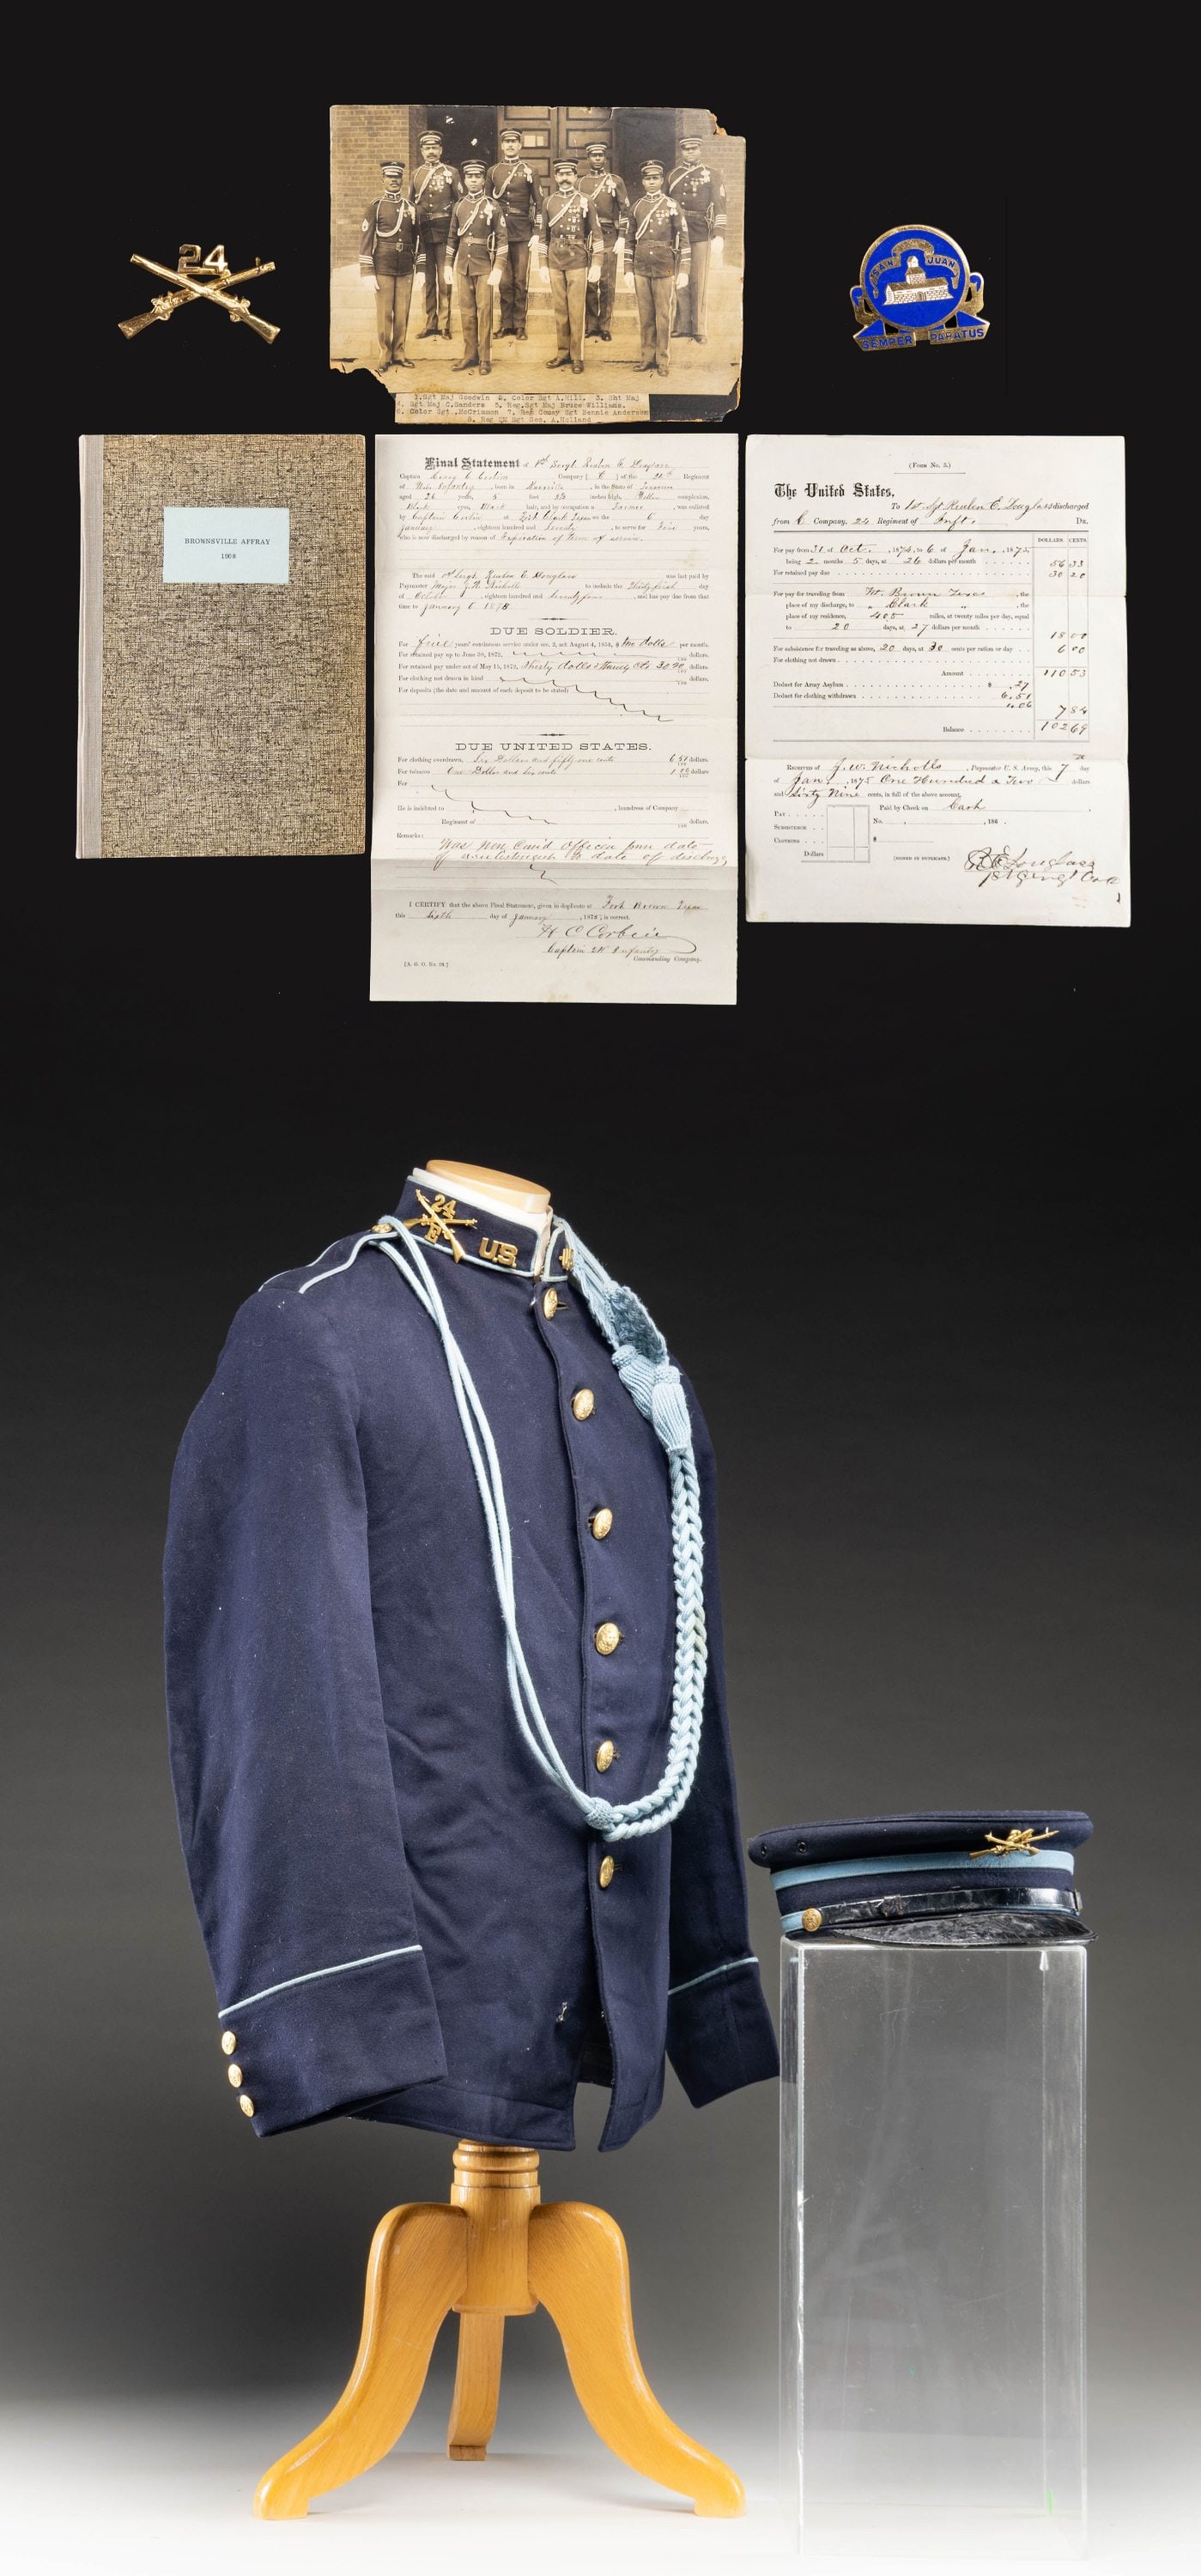 24
SAN JUAN
SEMPER PARATUS
1.Sgt Maj Goodwin 2. Color Sgt A.Hill. 3. Sht Maj
4. Sgt Maj C.Sanders 5. Reg.Sgt Maj Bruce Williams.
6. Color Sgt .McCrimmon 7. Reg Comsy Sgt Bennie Anderson
8. Reg QM Sgt Geo. A.Holland
BROWNSVILLE AFFRAY
1908
Final Statement of 1st Sergt Reuben E. Douglass
Captain Henry C. Corbin Company ( C ) of the 24th Regiment
of Infantry, born in in the State of
aged 26 years, 5 feet inches high, Yellow complexion,
Black eyes, Black hair, and by occupation a Farmer, was enlisted
by Captain Corbin at Fort Clark Texas on the 6 day
January, eighteen hundred and Seventy, to serve for Five years,
who is now discharged by reason of Expiration of term of service.
The said 1st Sergt Reuben E. Douglass was last paid by
Paymaster Major J.W. Nicholls to include the Thirty first day
of October, eighteen hundred and seventy four, and has pay due from that
time to January 6 1875
DUE SOLDIER.
For five years' continuous service under sec. 2, act August 4, 1854, $ dolls per month.
For retained pay up to June 30, 1872, dollars.
For retained pay under act of May 15, 1872, Thirty dolls & Twenty Cts 30 20/100 dollars.
For clothing not drawn in kind dollars.
For deposits (the date and amount of each deposit to be stated)
DUE UNITED STATES.
For clothing overdrawn, Six Dollars and fifty one cents 6 51 dollars.
For tobacco One Dollar and six cents 1 06 dollars
For
He is indebted to , laundress of Company
Regiment of dollars.
Remarks:
Was non Com'd Officer from date
of reenlistment to date of discharge
I CERTIFY that the above Final Statement, given in duplicate at Fort Brown Texas
this Sixth day of January, 1875, is correct.
H C Corbin
Captain 24 Infantry
Commanding Company.
[A. G. O. No. 94.]
(Form No. 5.)
The United States,
To 1st Sgt Reuben E. Douglass discharged
from C Company, 24 Regiment of Inft. Dr.
DOLLARS. CENTS.
For pay from 31 of Oct., 1874, to 6 of Jan., 1875,
being 2 months 5 days, at 26 dollars per month 56 33
For retained pay due 30 20
For pay for traveling from Ft. Brown Texas, the
place of my discharge, to " Clark ", the
place of my residence, 405 miles, at twenty miles per day, equal
to 20 days, at 27 dollars per month 18 00
For subsistence for traveling as above, 20 days, at 30 cents per ration or day 6 00
For clothing not drawn
Amount 110 53
Deduct for Army Asylum $ .27
Deduct for clothing withdrawn 6.51
1.06 7 84
Balance 102 69
RECEIVED of J. W. Nicholls, Paymaster U. S. Army, this 7th day
of Jan, 1875 One Hundred & Two dollars
and Sixty Nine cents, in full of the above account.
PAY Paid by Check on Cash
SUBSISTENCE No. , 186 .
CLOTHING $
Dollars (SIGNED IN DUPLICATE.)
R E Douglass
1st Sergt Co C
24
E
U.S.